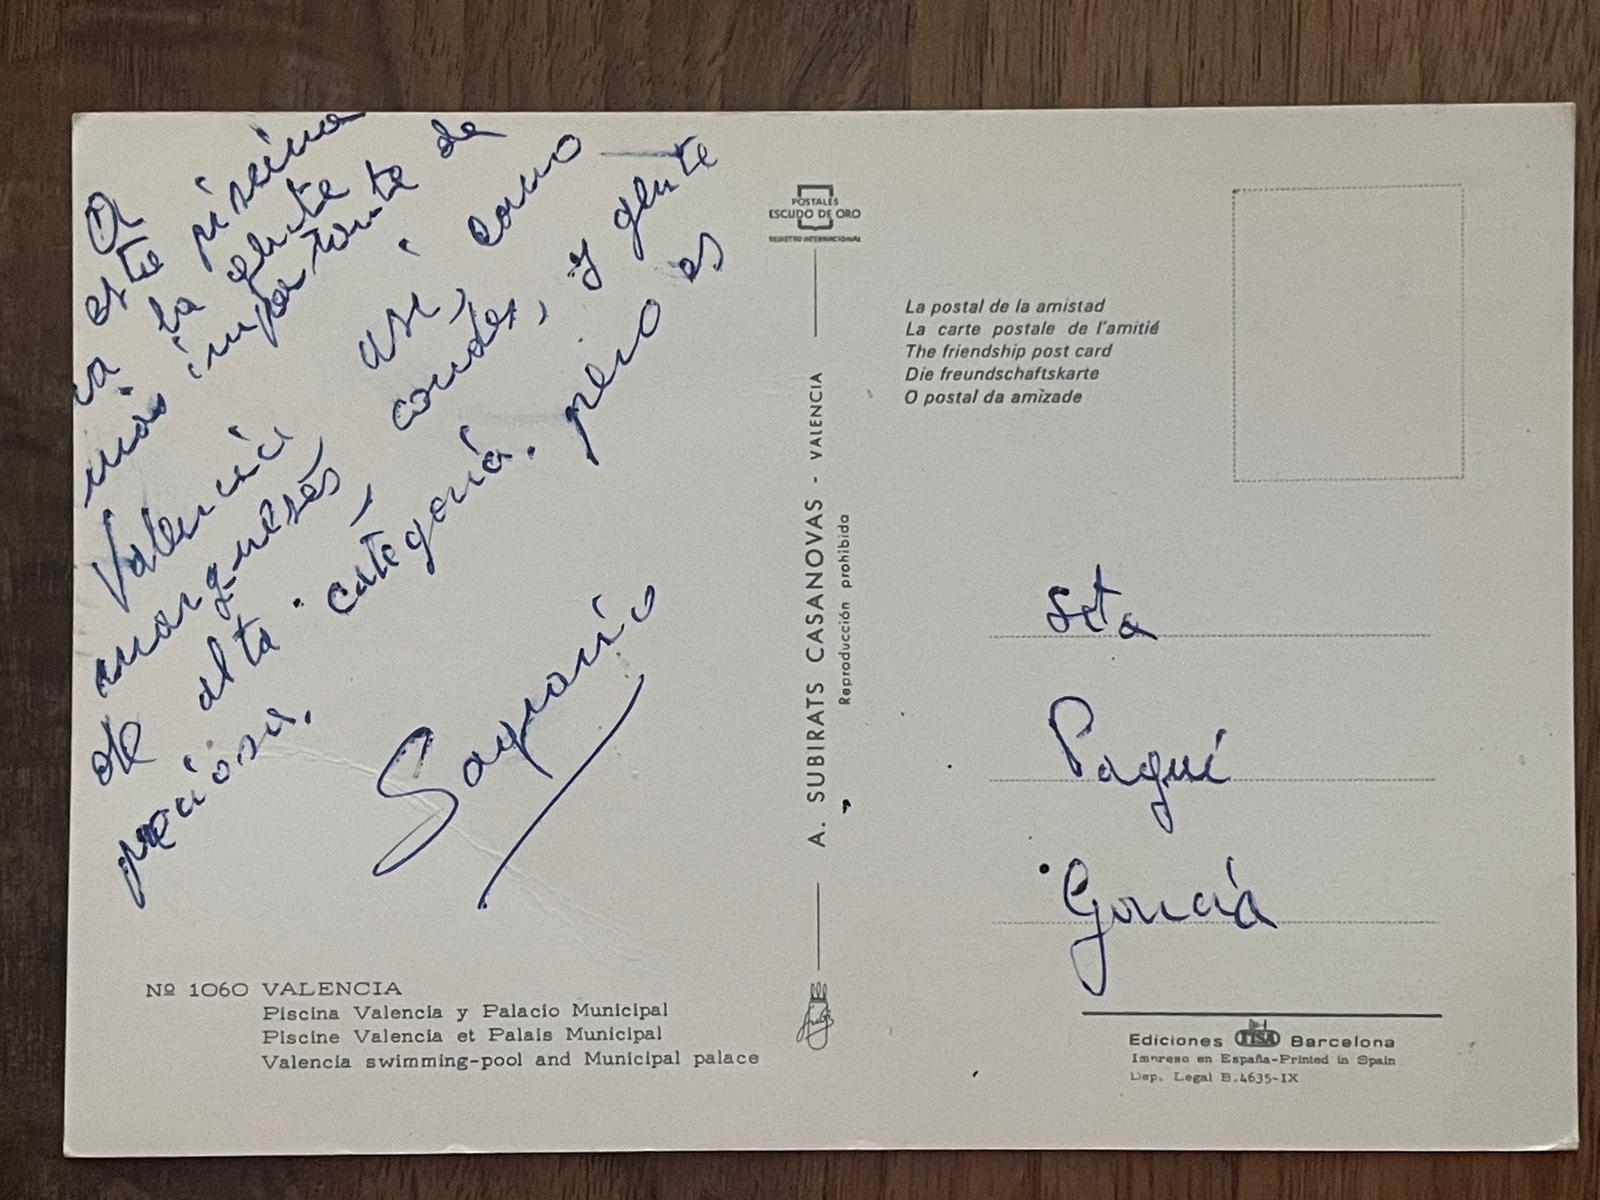 A
este piscina
va la gente
más importante de
Valencia así, como
marqueses, condes, y gente
de alta categoria. pero es
preciosa.
Sagrario
Nº 1060 VALENCIA
Piscina Valencia y Palacio Municipal
Piscine Valencia et Palais Municipal
Valencia swimming-pool and Municipal palace
POSTALES
ESCUDO DE ORO
REGISTRO INTERNACIONAL
A. SUBIRATS CASANOVAS - VALENCIA
Reproducción prohibida
La postal de la amistad
La carte postale de l'amitié
The friendship post card
Die freundschaftskarte
O postal da amizade
Srta
Paqui
García
Ediciones FISA Barcelona
Impreso en España-Printed in Spain
Dep. Legal B.4635-IX